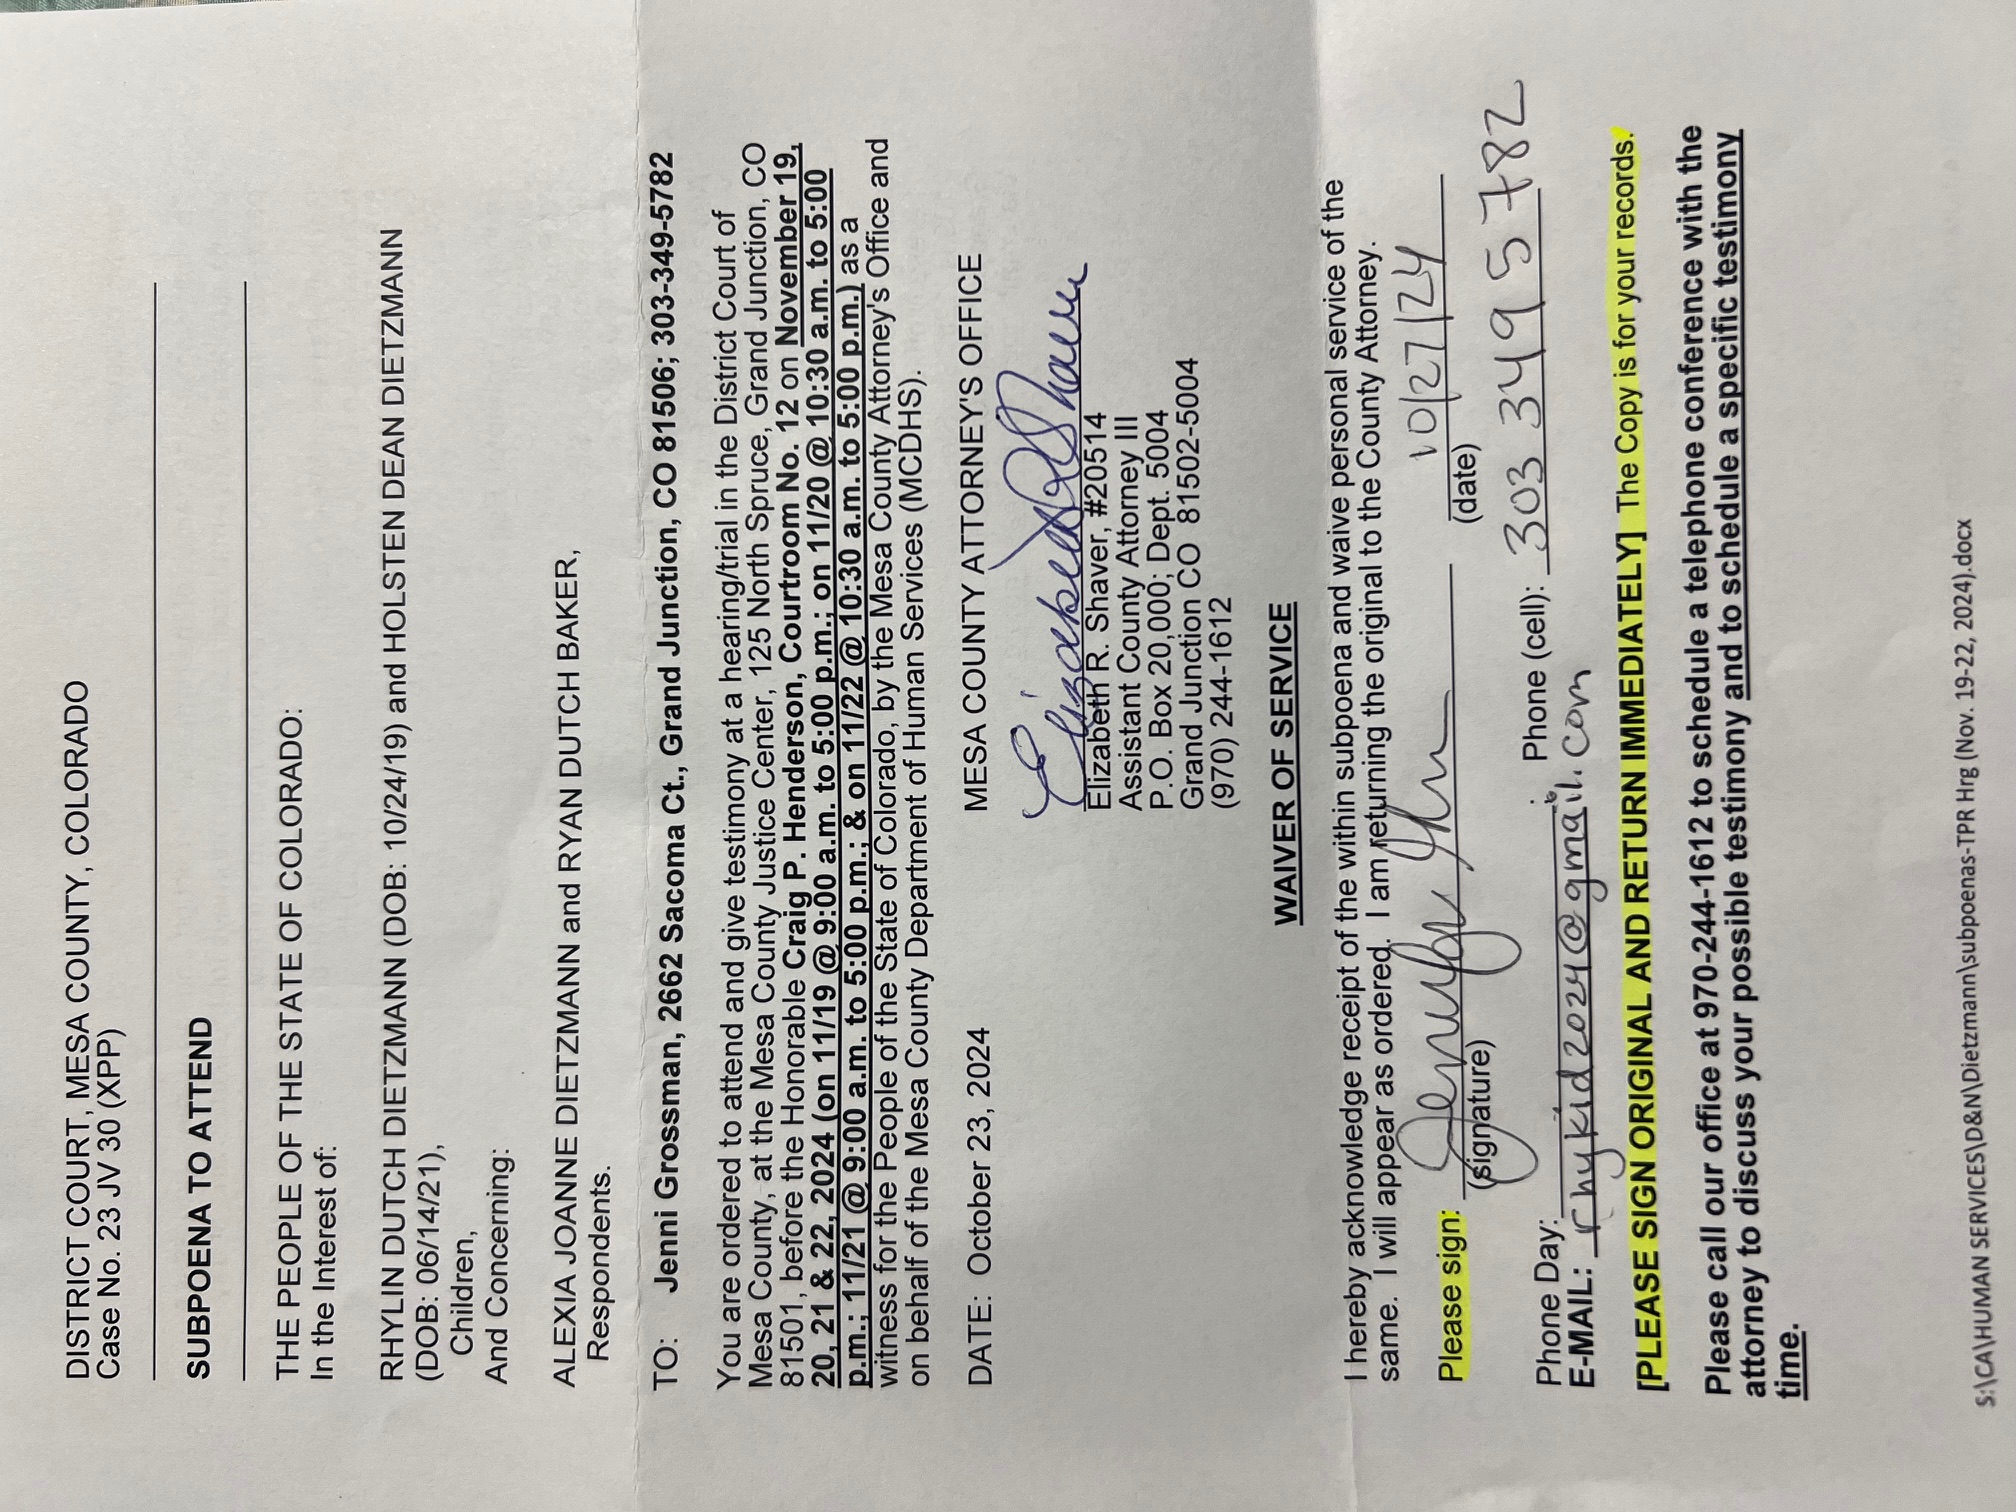 DISTRICT COURT, MESA COUNTY, COLORADO
Case No. 23 JV 30 (XPP)
SUBPOENA TO ATTEND
THE PEOPLE OF THE STATE OF COLORADO:
In the Interest of:
RHYLIN DUTCH DIETZMANN (DOB: 10/24/19) and HOLSTEN DEAN DIETZMANN
(DOB: 06/14/21),
Children,
And Concerning:
ALEXIA JOANNE DIETZMANN and RYAN DUTCH BAKER,
Respondents.
TO: Jenni Grossman, 2662 Sacoma Ct., Grand Junction, CO 81506; 303-349-5782
You are ordered to attend and give testimony at a hearing/trial in the District Court of
Mesa County, at the Mesa County Justice Center, 125 North Spruce, Grand Junction, CO
81501, before the Honorable Craig P. Henderson, Courtroom No. 12 on November 19,
20, 21 & 22, 2024 (on 11/19 @ 9:00 a.m. to 5:00 p.m.; on 11/20 @ 10:30 a.m. to 5:00
p.m.; 11/21 @ 9:00 a.m. to 5:00 p.m.; & on 11/22 @ 10:30 a.m. to 5:00 p.m.) as a
witness for the People of the State of Colorado, by the Mesa County Attorney's Office and
on behalf of the Mesa County Department of Human Services (MCDHS).
DATE: October 23, 2024 MESA COUNTY ATTORNEY'S OFFICE
Elizabeth R Shaver
Elizabeth R. Shaver, #20514
Assistant County Attorney III
P.O. Box 20,000; Dept. 5004
Grand Junction CO 81502-5004
(970) 244-1612
WAIVER OF SERVICE
I hereby acknowledge receipt of the within subpoena and waive personal service of the
same. I will appear as ordered. I am returning the original to the County Attorney.
Please sign: Jennifer 10/27/24
(signature) (date)
Phone Day: Phone (cell): 303 349 5782
E-MAIL: rhykid2024@gmail.com
[PLEASE SIGN ORIGINAL AND RETURN IMMEDIATELY] The Copy is for your records.
Please call our office at 970-244-1612 to schedule a telephone conference with the
attorney to discuss your possible testimony and to schedule a specific testimony
time.
S:\CA\HUMAN SERVICES\D&N\Dietzmann\subpoenas-TPR Hrg (Nov. 19-22, 2024).docx